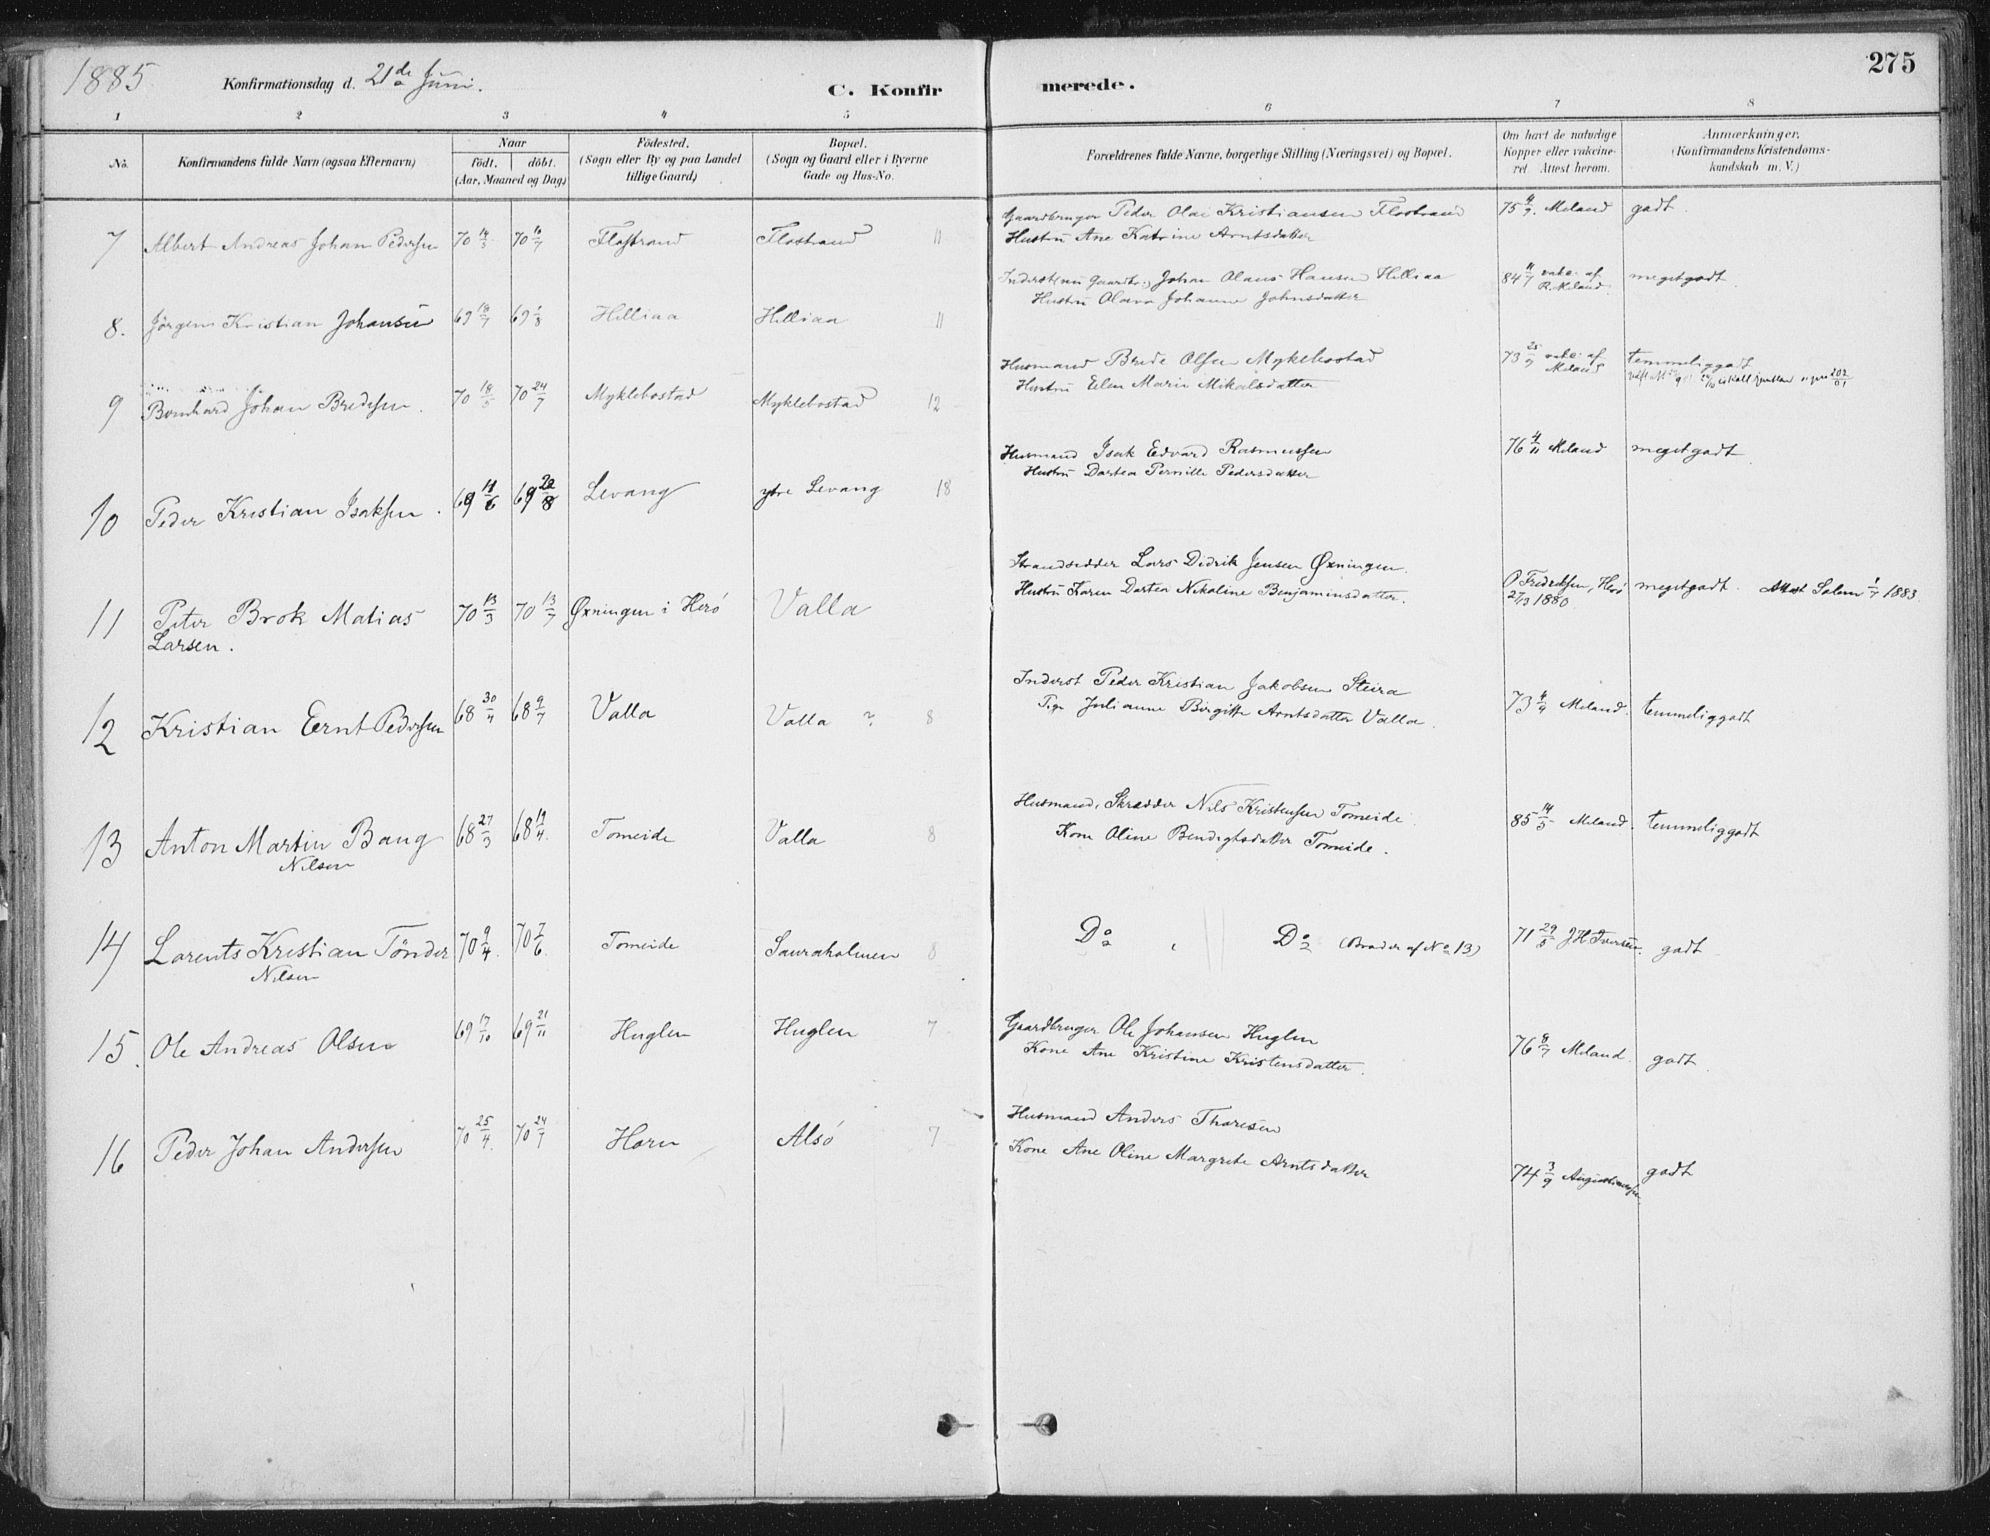 1885 Konfirmationsdag d. 21de Juni. C. Konfirmerede. 275
1 2 3 4 5 6 7 8
No. Konfirmandens fulde Navn (ogsaa Efternavn) Naar födt. döbt. (Aar, Maaned og Dag) Födested. (Sogn eller By og paa Landet tillige Gaard) Bopæl. (Sogn og Gaard eller i Byerne Gade og Hus-No. Forældrenes fulde Navne, borgerlige Stilling (Næringsvei) og Bopæl. Om havt de naturlige Kopper eller vakcineret Attest herom. Anmærkninger. (Konfirmandens Kristendomskundskab m. V.)
7 Albert Andreas Johan Pedersen 70 14/5 70 10/7 Flostrand Flostrand 11 Gaardbruger Peder Olai Kristiansen Flostrand 75 4/9. Meland godt.
Hustru Ane Katrine Arntsdatter
8. Jörgen Kristian Johansen 69 18/7 69 1/8 Helliaa Helliaa 11 Inderst (nu Gaardbr.) Johan Olaus Hansen Helliaa 84 11/7 vakc. af R. Meland. megetgodt.
Hustru Olava Johanna Johnsdatter
9 Bernhard Johan Bredesen. 70 18/5 70 24/7 Myklebostad Myklebostad 12 Husmand Brede Olsen Myklebostad 73 25/9 vakc. af Meland temmeliggodt
Hustru Elen Marie Mikalsdatter
10 Peder Kristian Isaksen. 69 11/6 69 22/8 Levang ytre Levang 18 Husmand Isak Edvard Rasmussen 76 4/11 Meland megetgodt
Hustru Dortea Pernille Pedersdatter
11 Peter Brok Matias Larsen. 70 13/3 70 13/7 Øxningen i Herö Valla Strandsidder Lars Didrik Jensen Øxningen. O Fredriksen, Herö 27/3 1880. megetgodt. Attest Salem 1/7 1883.
Hustru Karen Dortea Nikoline Benjaminsdatter.
12 Kristian Ernt Pedersen 68 30/4 68 9/7 Valla Valla ? 8 Inderst Peder Kristian Jakobsen Steira 73 4/9 Meland. temmeliggodt
Pige Julianne Birgitte Arntsdatter Valla.
13 Anton Martin Bang Nilsen 68 27/3 68 19/4. Tomeide Valla 8 Husmand, Skrædder Nils Kristensen Tomeide. 85 14/5 Meland. temmeliggodt
Kone Oline Bendigtsdatter Tomeide.
14 Lorents Kristian Tönder Nilsen 70 9/4. 70 7/6. Tomeide Sauraholmen 8 Do Do (Broder af No 13) 71 29/5 J H Iversen. godt
15. Ole Andreas Olsen 69 17/10 69 21/11 Huglen Huglen 7. Gaardbruger Ole Johansen Huglen 76 8/7 Meland. godt.
Kone Ane Kristine Kristensdatter.
16 Peder Johan Andersen 70 25/4. 70 24/7 Horn Alsö 7 Husmand Anders Thoresen 74 3/9 godt
Kone Ane Oline Margrete Arntsdatter